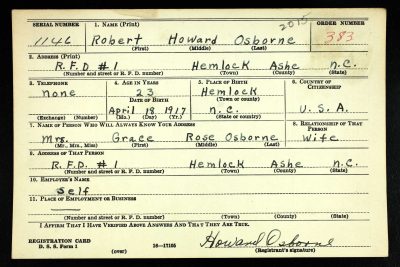 SERIAL NUMBER 1. NAME (Print) 2015 ORDER NUMBER
1146 Robert Howard Osborne 383
(First) (Middle) (Last)
2. ADDRESS (Print)
R.F.D #1 Hemlock Ashe N.C.
(Number and street or R. F. D. number) (Town) (County) (State)
3. TELEPHONE 4. AGE IN YEARS 5. PLACE OF BIRTH 6. COUNTRY OF CITIZENSHIP
none 23 Hemlock
DATE OF BIRTH (Town or county)
April 18 1917 N.C. U.S.A.
(Exchange) (Number) (Mo.) (Day) (Yr.) (State or country)
7. NAME OF PERSON WHO WILL ALWAYS KNOW YOUR ADDRESS 8. RELATIONSHIP OF THAT PERSON
Mrs. Grace Rose Osborne Wife
(Mr., Mrs., Miss) (First) (Middle) (Last)
9. ADDRESS OF THAT PERSON
R.F.D. #1 Hemlock Ashe N.C.
(Number and street or R. F. D. number) (Town) (County) (State)
10. EMPLOYER'S NAME
Self
11. PLACE OF EMPLOYMENT OR BUSINESS
(Number and street or R. F. D. number) (Town) (County) (State)
I AFFIRM THAT I HAVE VERIFIED ABOVE ANSWERS AND THAT THEY ARE TRUE.
REGISTRATION CARD
D. S. S. Form 1 (over) 16—17105 Howard Osborne
(Registrant's signature)